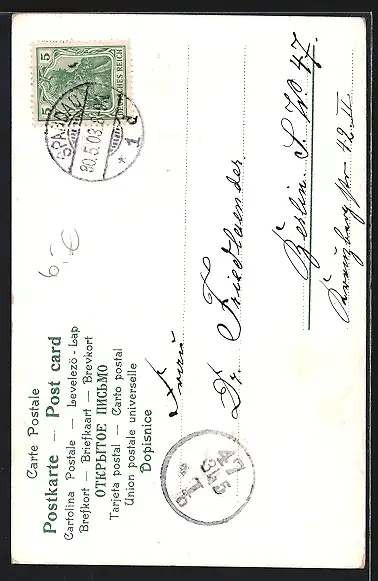 Carte Postale
Postkarte — Post card
Cartolina Postale — Levelező-Lap
Brefkort — Briefkaart — Brevkort
ОТКРЫТОЕ ПИСЬМО
Tarjeta postal — Carto postal
Union postale universelle
Dopisnice
5 5
DEUTSCHES REICH
SPANDAU
30.5.03
* 1 c
6,-€
Frau
Dr. Friedlaender
Berlin S.W. 47
Kreuzbergstr. 42 II
47
345